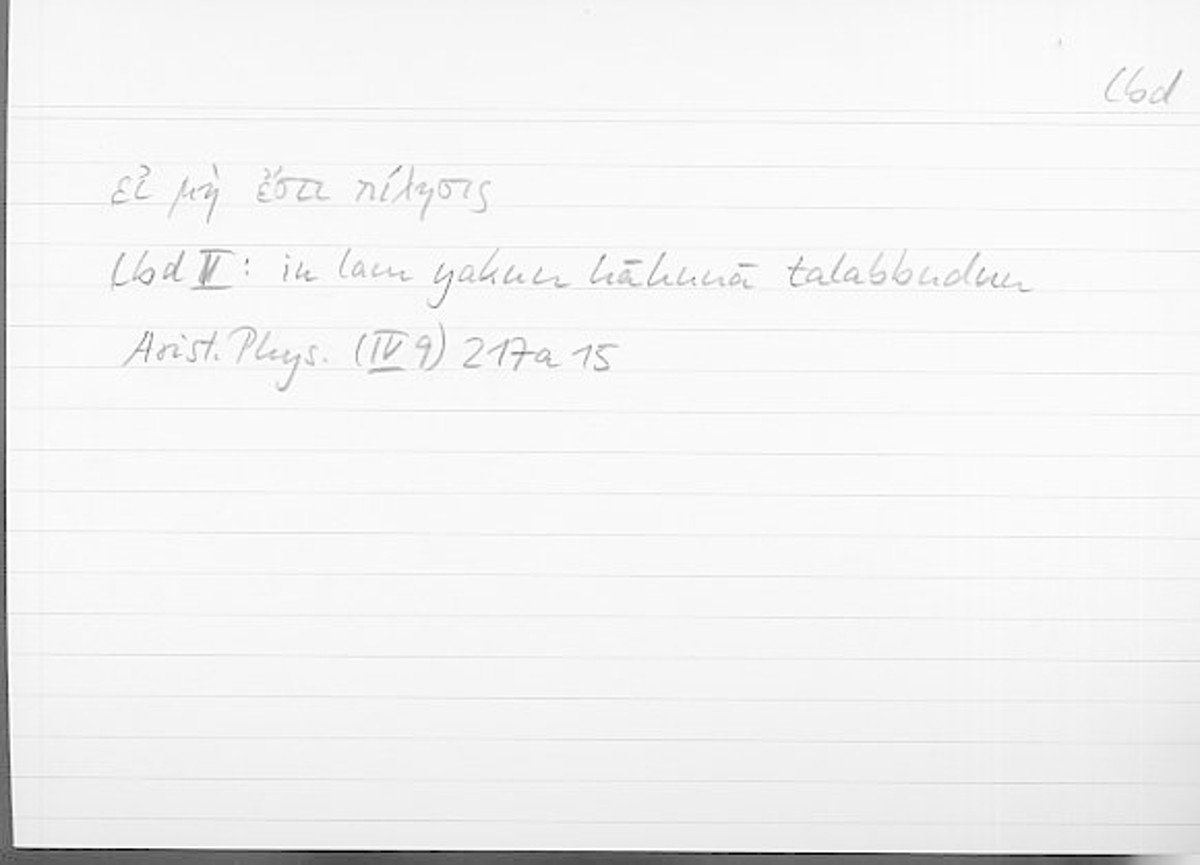 lbd
εἰ μὴ ἔσται πίλησις
lbd V: in lam yakun hāhunā talabbudun
Arist. Phys. (IV 9) 217a 15